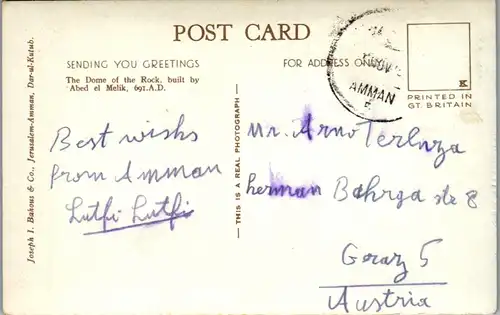 POST CARD
SENDING YOU GREETINGS
The Dome of the Rock, built by
Abed el Melik, 691.A.D.
Best wishs
from Amman
Lutfi Lutfi
Joseph I. Bahous & Co., Jerusalem-Amman, Dar-al-Kutub.
— THIS IS A REAL PHOTOGRAPH —
FOR ADDRESS ONLY
AMMAN
5
K
PRINTED IN
GT. BRITAIN
Mr. Arno Terlnza
herman Bahrga str 8
Geraz 5
Austria